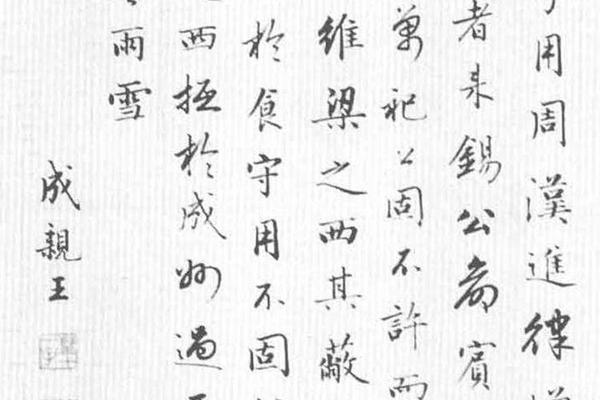 用周漢進律
者來錫公爵賓
萬祀公固不許而
維梁之西其蔽
於食守用不固
西極於咸州過
雨雪
成親王